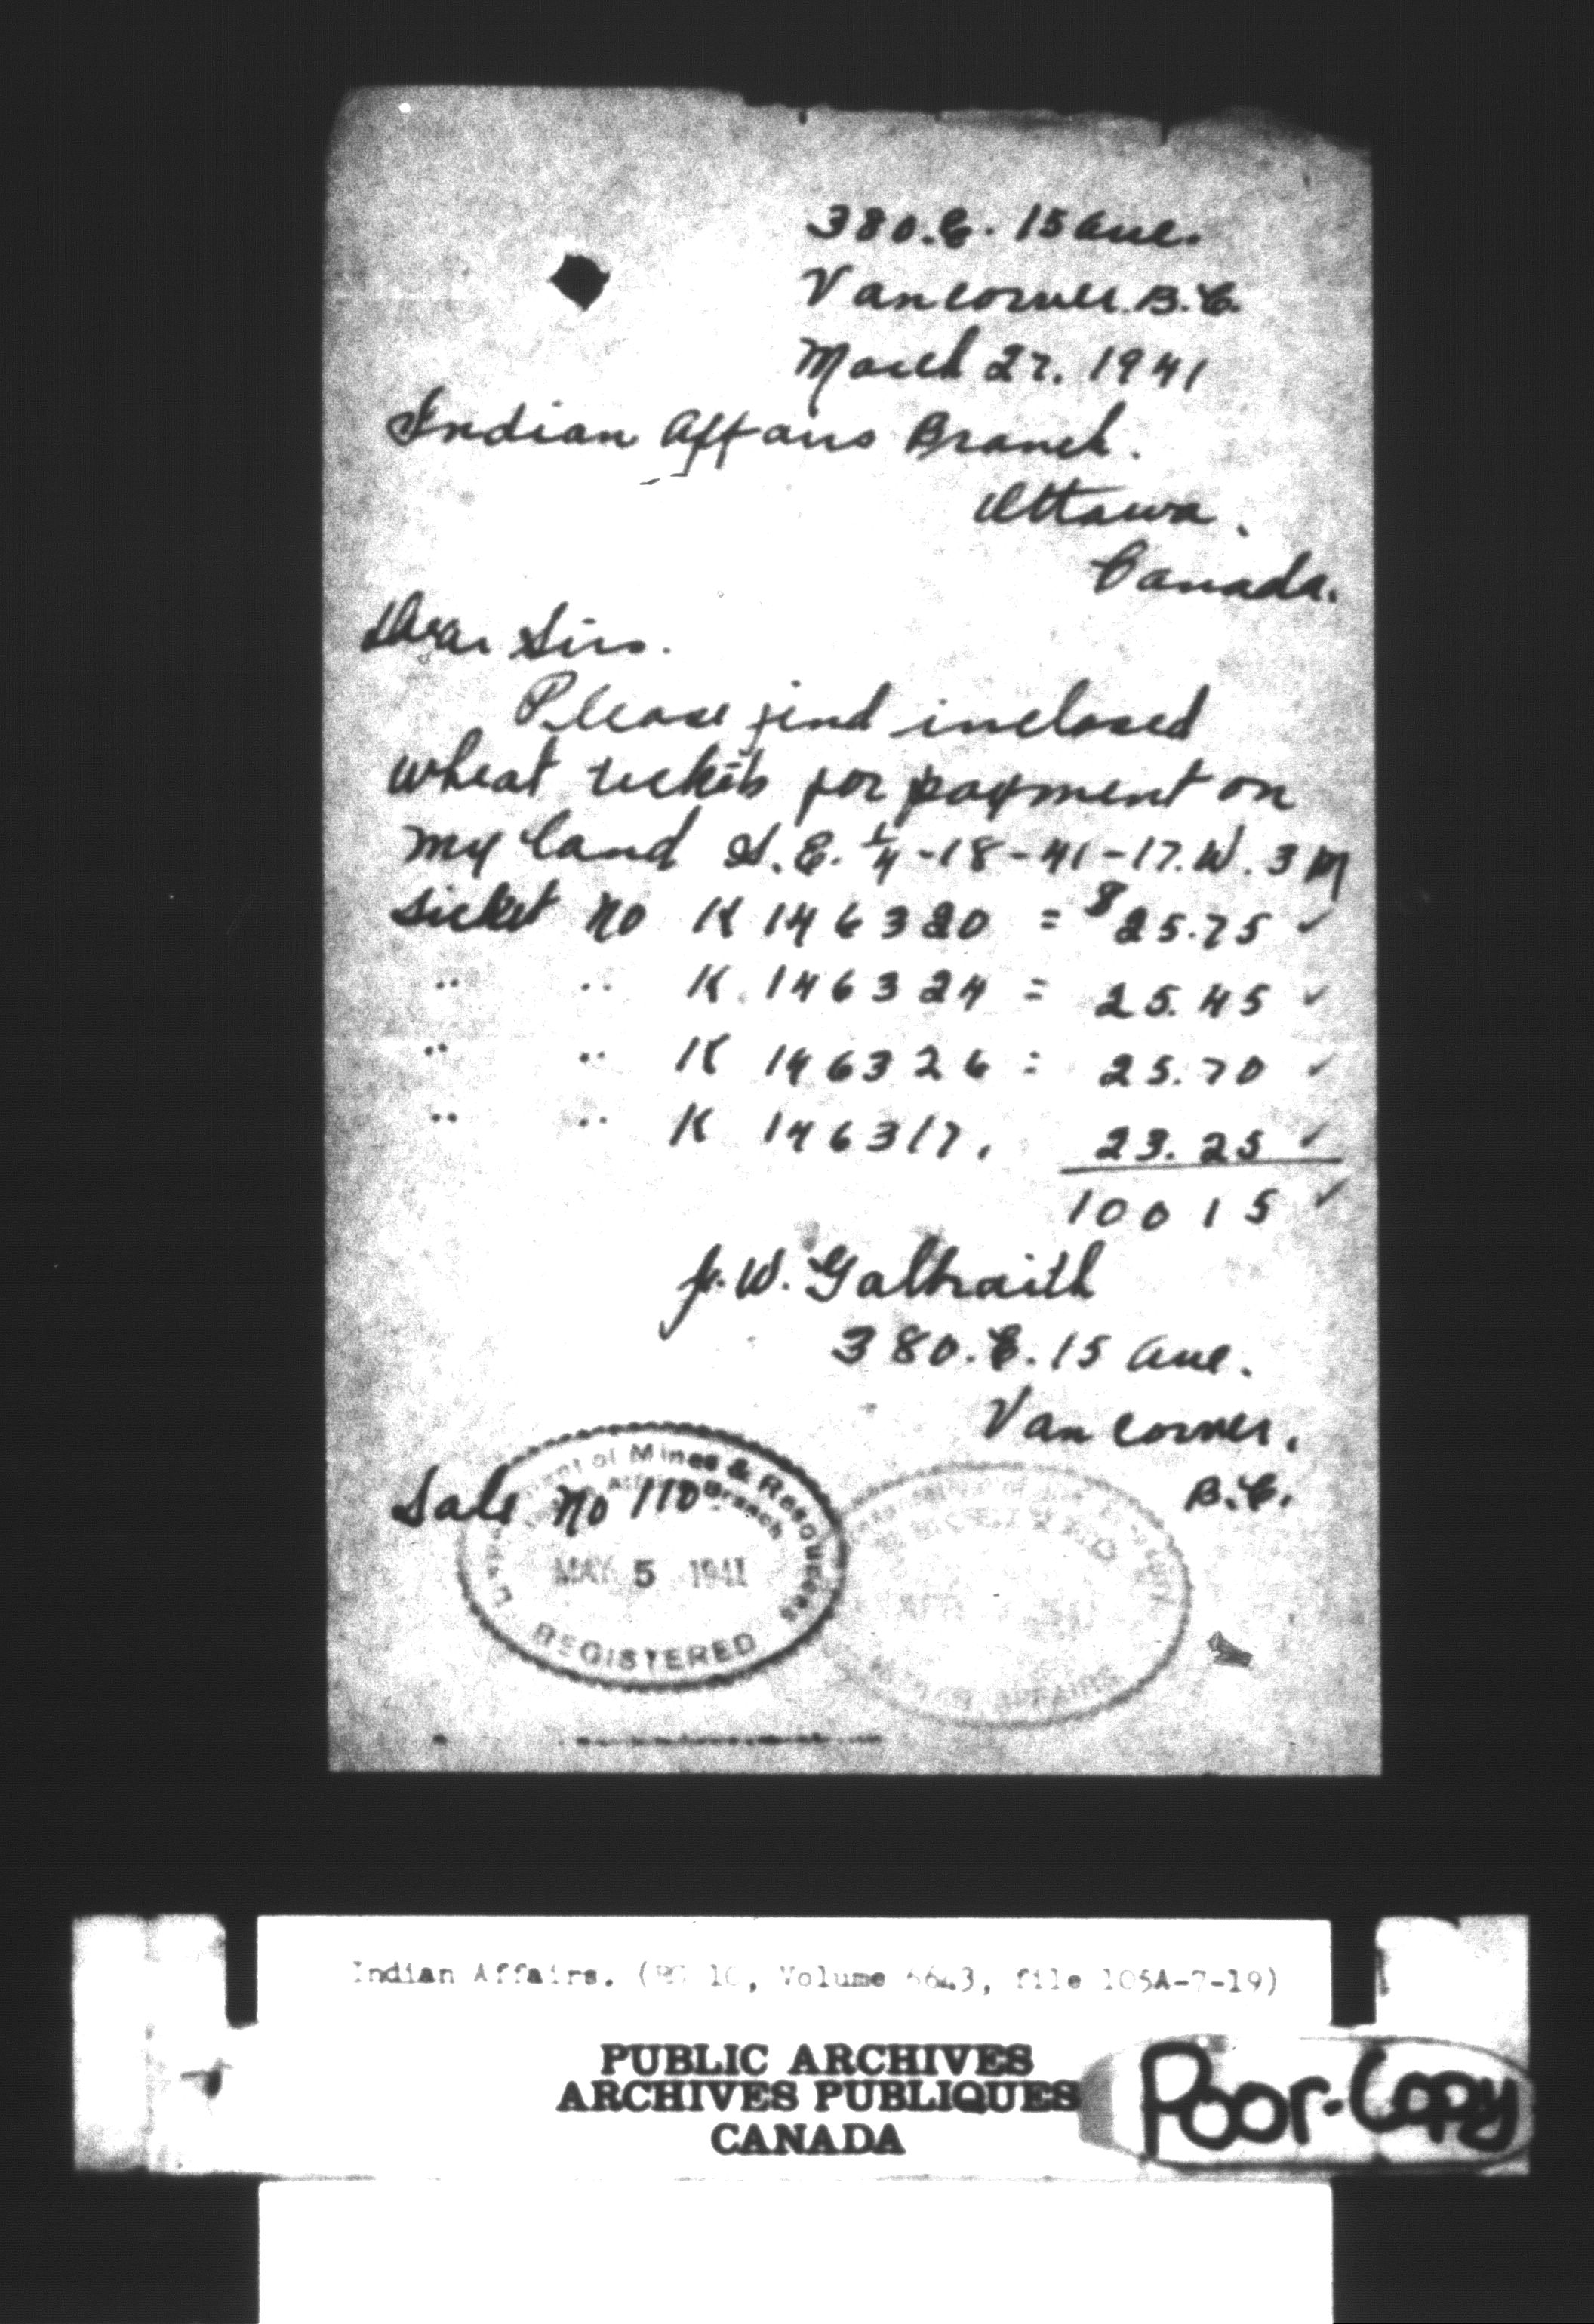 380.E. 15 Ave.
Vancouver. B.C.
March 27. 1941
Indian Affairs Branch.
Ottawa.
Canada.
Dear Sirs.
Please find inclosed
wheat tickets for payment on
my land S.E. ¼-18-41-17.W. 3 M
ticket no K 146320 = $25.75 ✓
" " K. 146324 = 25.45 ✓
" " K 146326 = 25.70 ✓
" " K 146317. 23.25 ✓
100 15 ✓
J.W. Galbraith
380. E. 15 Ave.
Vancouver.
B.C.
Sale no 110
Mines & Resources
Branch
MAY 5 1941
REGISTERED
RECEIVED
AFFAIRS
Indian Affairs. (RG 10, Volume 6643, file 105A-7-19)
PUBLIC ARCHIVES
ARCHIVES PUBLIQUES
CANADA
Poor-Copy